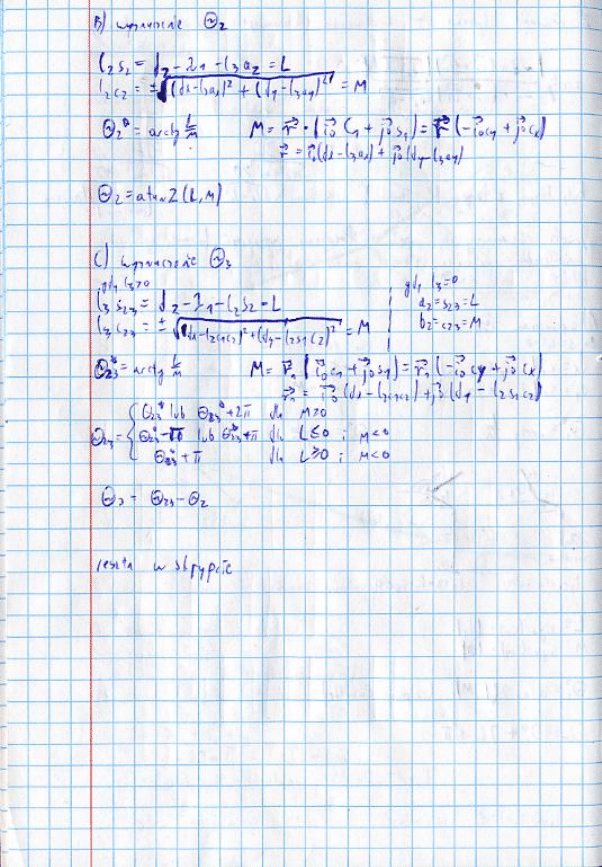 B) wyznaczenie Θ₂
l₂s₂ = d₂ - λ₁ - l₃a₂ = L
l₂c₂ = ±√((dx-l₃ax)² + (dy-l₃ay)²) = M
Θ₂* = arctg L/M M = r⃗ · (i⃗₀ c₁ + j⃗₀ s₁) = r⃗ (-i⃗₀cy + j⃗₀cx)
r⃗ = i⃗₀(dx-l₃ax) + j⃗₀(dy-l₃ay)
Θ₂ = atan2(L,M)
C) wyznaczenie Θ₃
gdy l₃>0 gdy l₃=0
l₃s₂₃ = d₂ - λ₁ - l₂s₂ = L a₂ = s₂₃ = L
l₃c₂₃ = ±√((dx-l₂c₁c₂)² + (dy-l₂s₁c₂)²) = M b₂ = c₂₃ = M
Θ₂₃* = arctg L/M M = r⃗₁ (i⃗₀c₁ + j⃗₀s₁) = r⃗₁ (-i⃗₀cy + j⃗₀cx)
r⃗₁ = i⃗₀(dx-l₂c₁c₂) + j⃗₀(dy-l₂s₁c₂)
Θ₂₃* lub Θ₂₃*+2π dla M>0
Θ₂₃ = { Θ₂₃*-π lub Θ₂₃*+π dla L≤0 i M<0
Θ₂₃*+π dla L≥0 i M<0
Θ₃ = Θ₂₃ - Θ₂
reszta w skrypcie